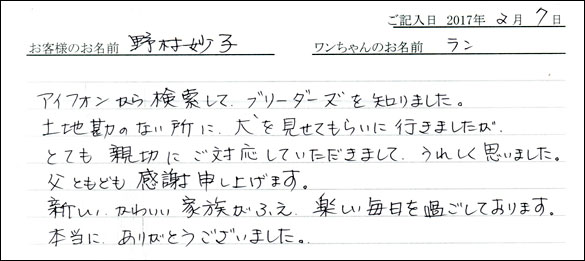 ご記入日 2017年 2月 7日
お客様のお名前 野村妙子 ワンちゃんのお名前 ラン
アイフォンから検索して、ブリーダーズを知りました。
土地勘のない所に、犬を見せてもらいに行きましたが、
とても親切にご対応していただきまして、うれしく思いました。
父ともども感謝申し上げます。
新しい、かわいい家族がふえ、楽しい毎日を過ごしております。
本当に、ありがとうございました。